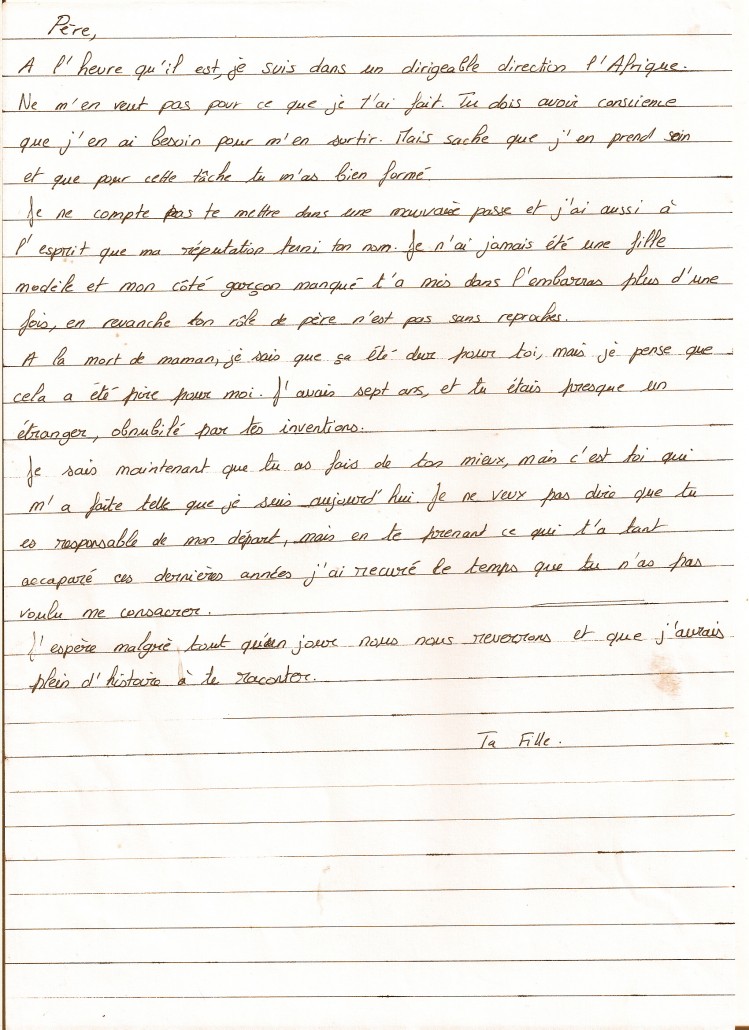 Père,
A l'heure qu'il est, je suis dans un dirigeable direction l'Afrique.
Ne m'en veut pas pour ce que je t'ai fait. Tu dois avoir conscience
que j'en ai besoin pour m'en sortir. Mais sache que j'en prend soin
et que pour cette tâche tu m'as bien formé.
Je ne compte pas te mettre dans une mauvaise passe et j'ai aussi à
l'esprit que ma réputation terni ton nom. Je n'ai jamais été une fille
modèle et mon côté garçon manqué t'a mis dans l'embarras plus d'une
fois, en revanche ton rôle de père n'est pas sans reproches.
A la mort de maman, je sais que ça été dur pour toi, mais je pense que
cela a été pire pour moi. J'avais sept ans, et tu étais presque un
étranger, obnubilé par tes inventions.
Je sais maintenant que tu as fais de ton mieux, mais c'est toi qui
m'a faite telle que je suis aujourd'hui. Je ne veux pas dire que tu
es responsable de mon départ, mais en te prenant ce qui t'a tant
accaparé ces dernières années j'ai recuré le temps que tu n'as pas
voulu me consacrer.
J'espère malgrè tout qu'un jour nous nous reverrons et que j'aurais
plein d'histoire à te raconter.
Ta Fille.